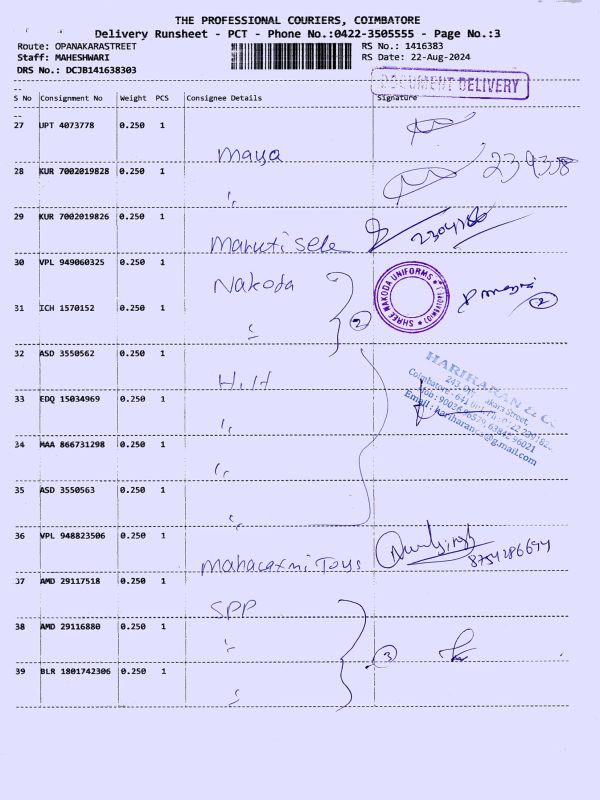 THE PROFESSIONAL COURIERS, COIMBATORE
Delivery Runsheet - PCT - Phone No.:0422-3505555 - Page No.:3
Route: OPANAKARASTREET RS No.: 1416383
Staff: MAHESHWARI RS Date: 22-Aug-2024
DRS No.: DCJB141638303
DOCUMENT DELIVERY
--
S No Consignment No Weight PCS Consignee Details Signature
--
27 UPT 4073778 0.250 1
Maya
28 KUR 7002019828 0.250 1
"
29 KUR 7002019826 0.250 1
Maruti sele
30 VPL 949060325 0.250 1
Nakoda
SHREE NAKODA UNIFORMS
31 ICH 1570152 0.250 1
" 2 2
32 ASD 3550562 0.250 1
H.H
HARIHARAN & CO
33 EDQ 15034969 0.250 1
"
34 MAA 866731298 0.250 1
"
35 ASD 3550563 0.250 1
"
36 VPL 948823506 0.250 1
Mahalaxmi Toys 8754286694
37 AMD 29117518 0.250 1
SPP
38 AMD 29116880 0.250 1
" 3
39 BLR 1801742306 0.250 1
"